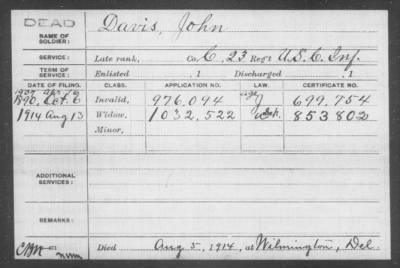 DEAD
NAME OF SOLDIER: Davis, John
SERVICE: Late rank, Co. C, 23 Reg't U.S.C. Inf.
TERM OF SERVICE: Enlisted , 1 Discharged , 1
DATE OF FILING. CLASS. APPLICATION NO. LAW. CERTIFICATE NO.
1890, Oct. 6 Invalid, 976,094 J 699,754
1914 Aug 13 Widow, 1032,522 853802
Minor,
ADDITIONAL SERVICES:
REMARKS:
Died Aug 5, 1914, at Wilmington, Del.